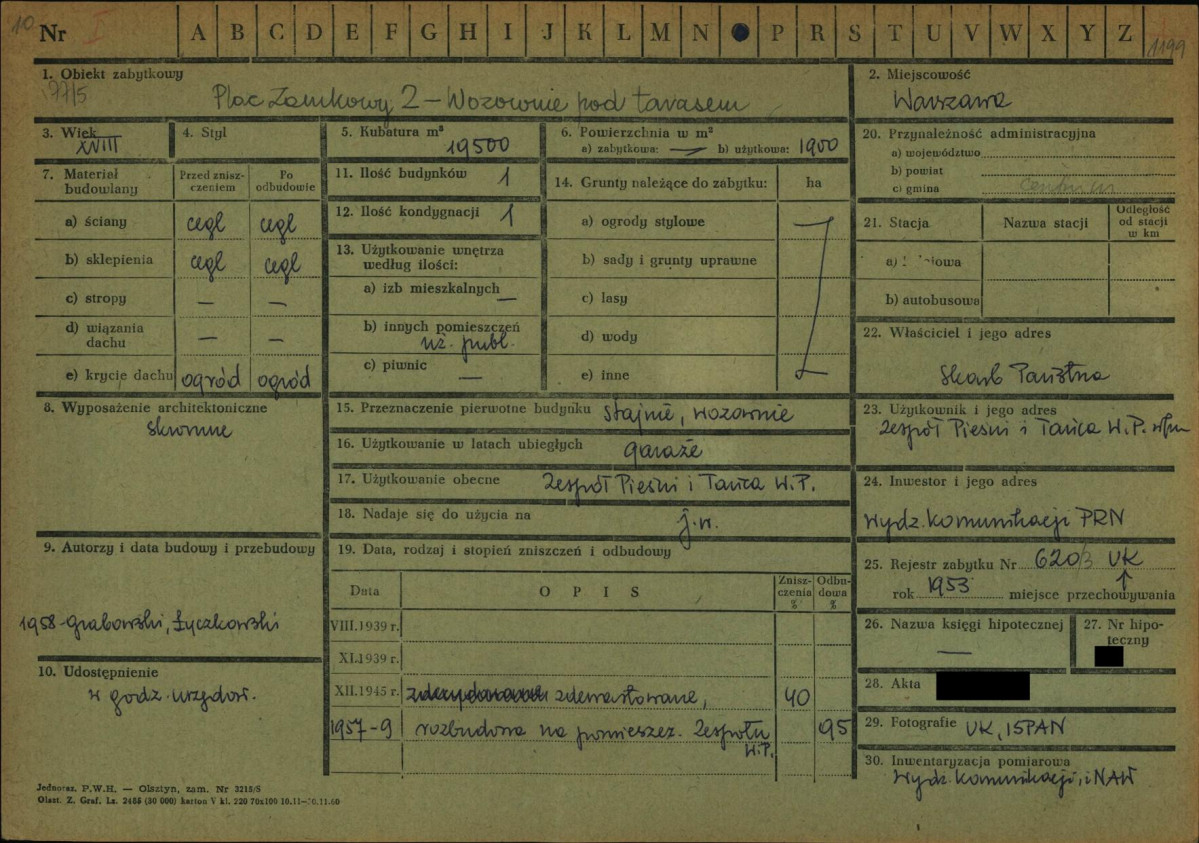 10 Nr I A B C D E F G H I J K L M N P R S T U V W X Y Z 1199
1. Obiekt zabytkowy
77/5
Plac Zamkowy 2 – Wozownie pod tarasem
2. Miejscowość
Warszawa
3. Wiek
XVIII
4. Styl
5. Kubatura m³
19500
6. Powierzchnia w m²
a) zabytkowa: — b) użytkowa: 1900
20. Przynależność administracyjna
a) województwo
b) powiat
c) gmina
7. Materiał budowlany
Przed zniszczeniem
Po odbudowie
a) ściany cegł cegł
b) sklepienia cegł cegł
c) stropy — —
d) wiązania dachu — —
e) krycie dachu ogród ogród
11. Ilość budynków 1
12. Ilość kondygnacji 1
13. Użytkowanie wnętrza według ilości:
a) izb mieszkalnych —
b) innych pomieszczeń
uż. publ.
c) piwnic —
14. Grunty należące do zabytku: ha
a) ogrody stylowe
b) sady i grunty uprawne
c) lasy
d) wody
e) inne
21. Stacja
Nazwa stacji
Odległość od stacji w km
a)
b) autobusowa
22. Właściciel i jego adres
Skarb Państwa
8. Wyposażenie architektoniczne
skromne
15. Przeznaczenie pierwotne budynku stajnie, wozownie
16. Użytkowanie w latach ubiegłych garaże
17. Użytkowanie obecne Zespół Pieśni i Tańca W.P.
18. Nadaje się do użycia na j.w.
23. Użytkownik i jego adres
Zespół Pieśni i Tańca W.P.
24. Inwestor i jego adres
Wydz. Komunikacji PRN
9. Autorzy i data budowy i przebudowy
1958-Grabowski, Łyczkowski
19. Data, rodzaj i stopień zniszczeń i odbudowy
Data
OPIS
Zniszczenia %
Odbudowa %
VIII.1939 r.
XI.1939 r.
XII.1945 r. zdewastowane, 40
1957-9 rozbudowa na pomieszcz. Zespołu W.P. 95
25. Rejestr zabytku Nr 620/3 UK
rok 1953 miejsce przechowywania
26. Nazwa księgi hipotecznej
—
27. Nr hipoteczny
10. Udostępnienie
w godz. urzędow.
28. Akta
29. Fotografie UK, ISPAN
30. Inwentaryzacja pomiarowa
Wydz. Komunikacji, i NAW
Jednoraz. P.W.H. — Olsztyn, zam. Nr 3215/S
Olszt. Z. Graf. Lz. 2455 (30 000) karton V kl. 220 70x100 10.11—30.11.60